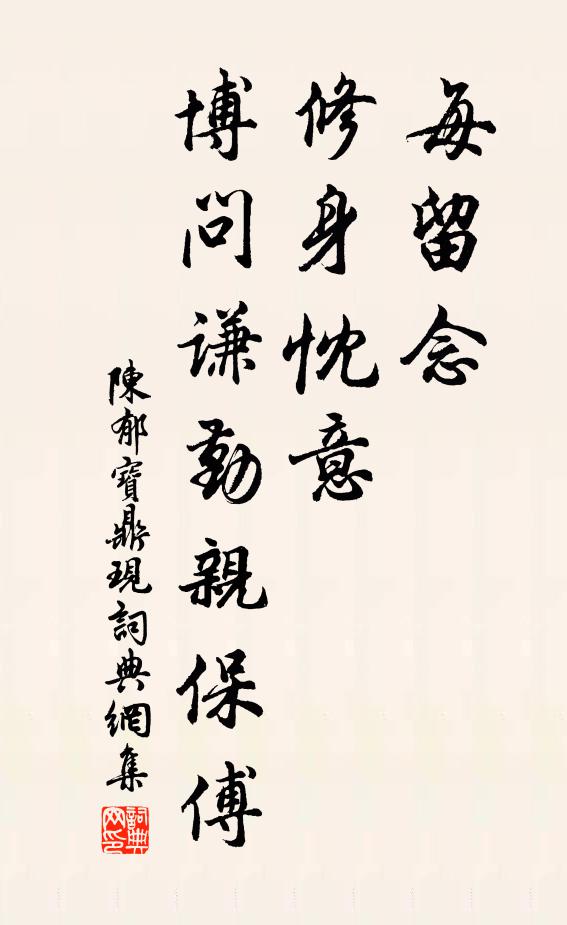 每留念
修身忱意
博問謙勤親保傅
陳郁寶鼎現詞典網集
詞典網印